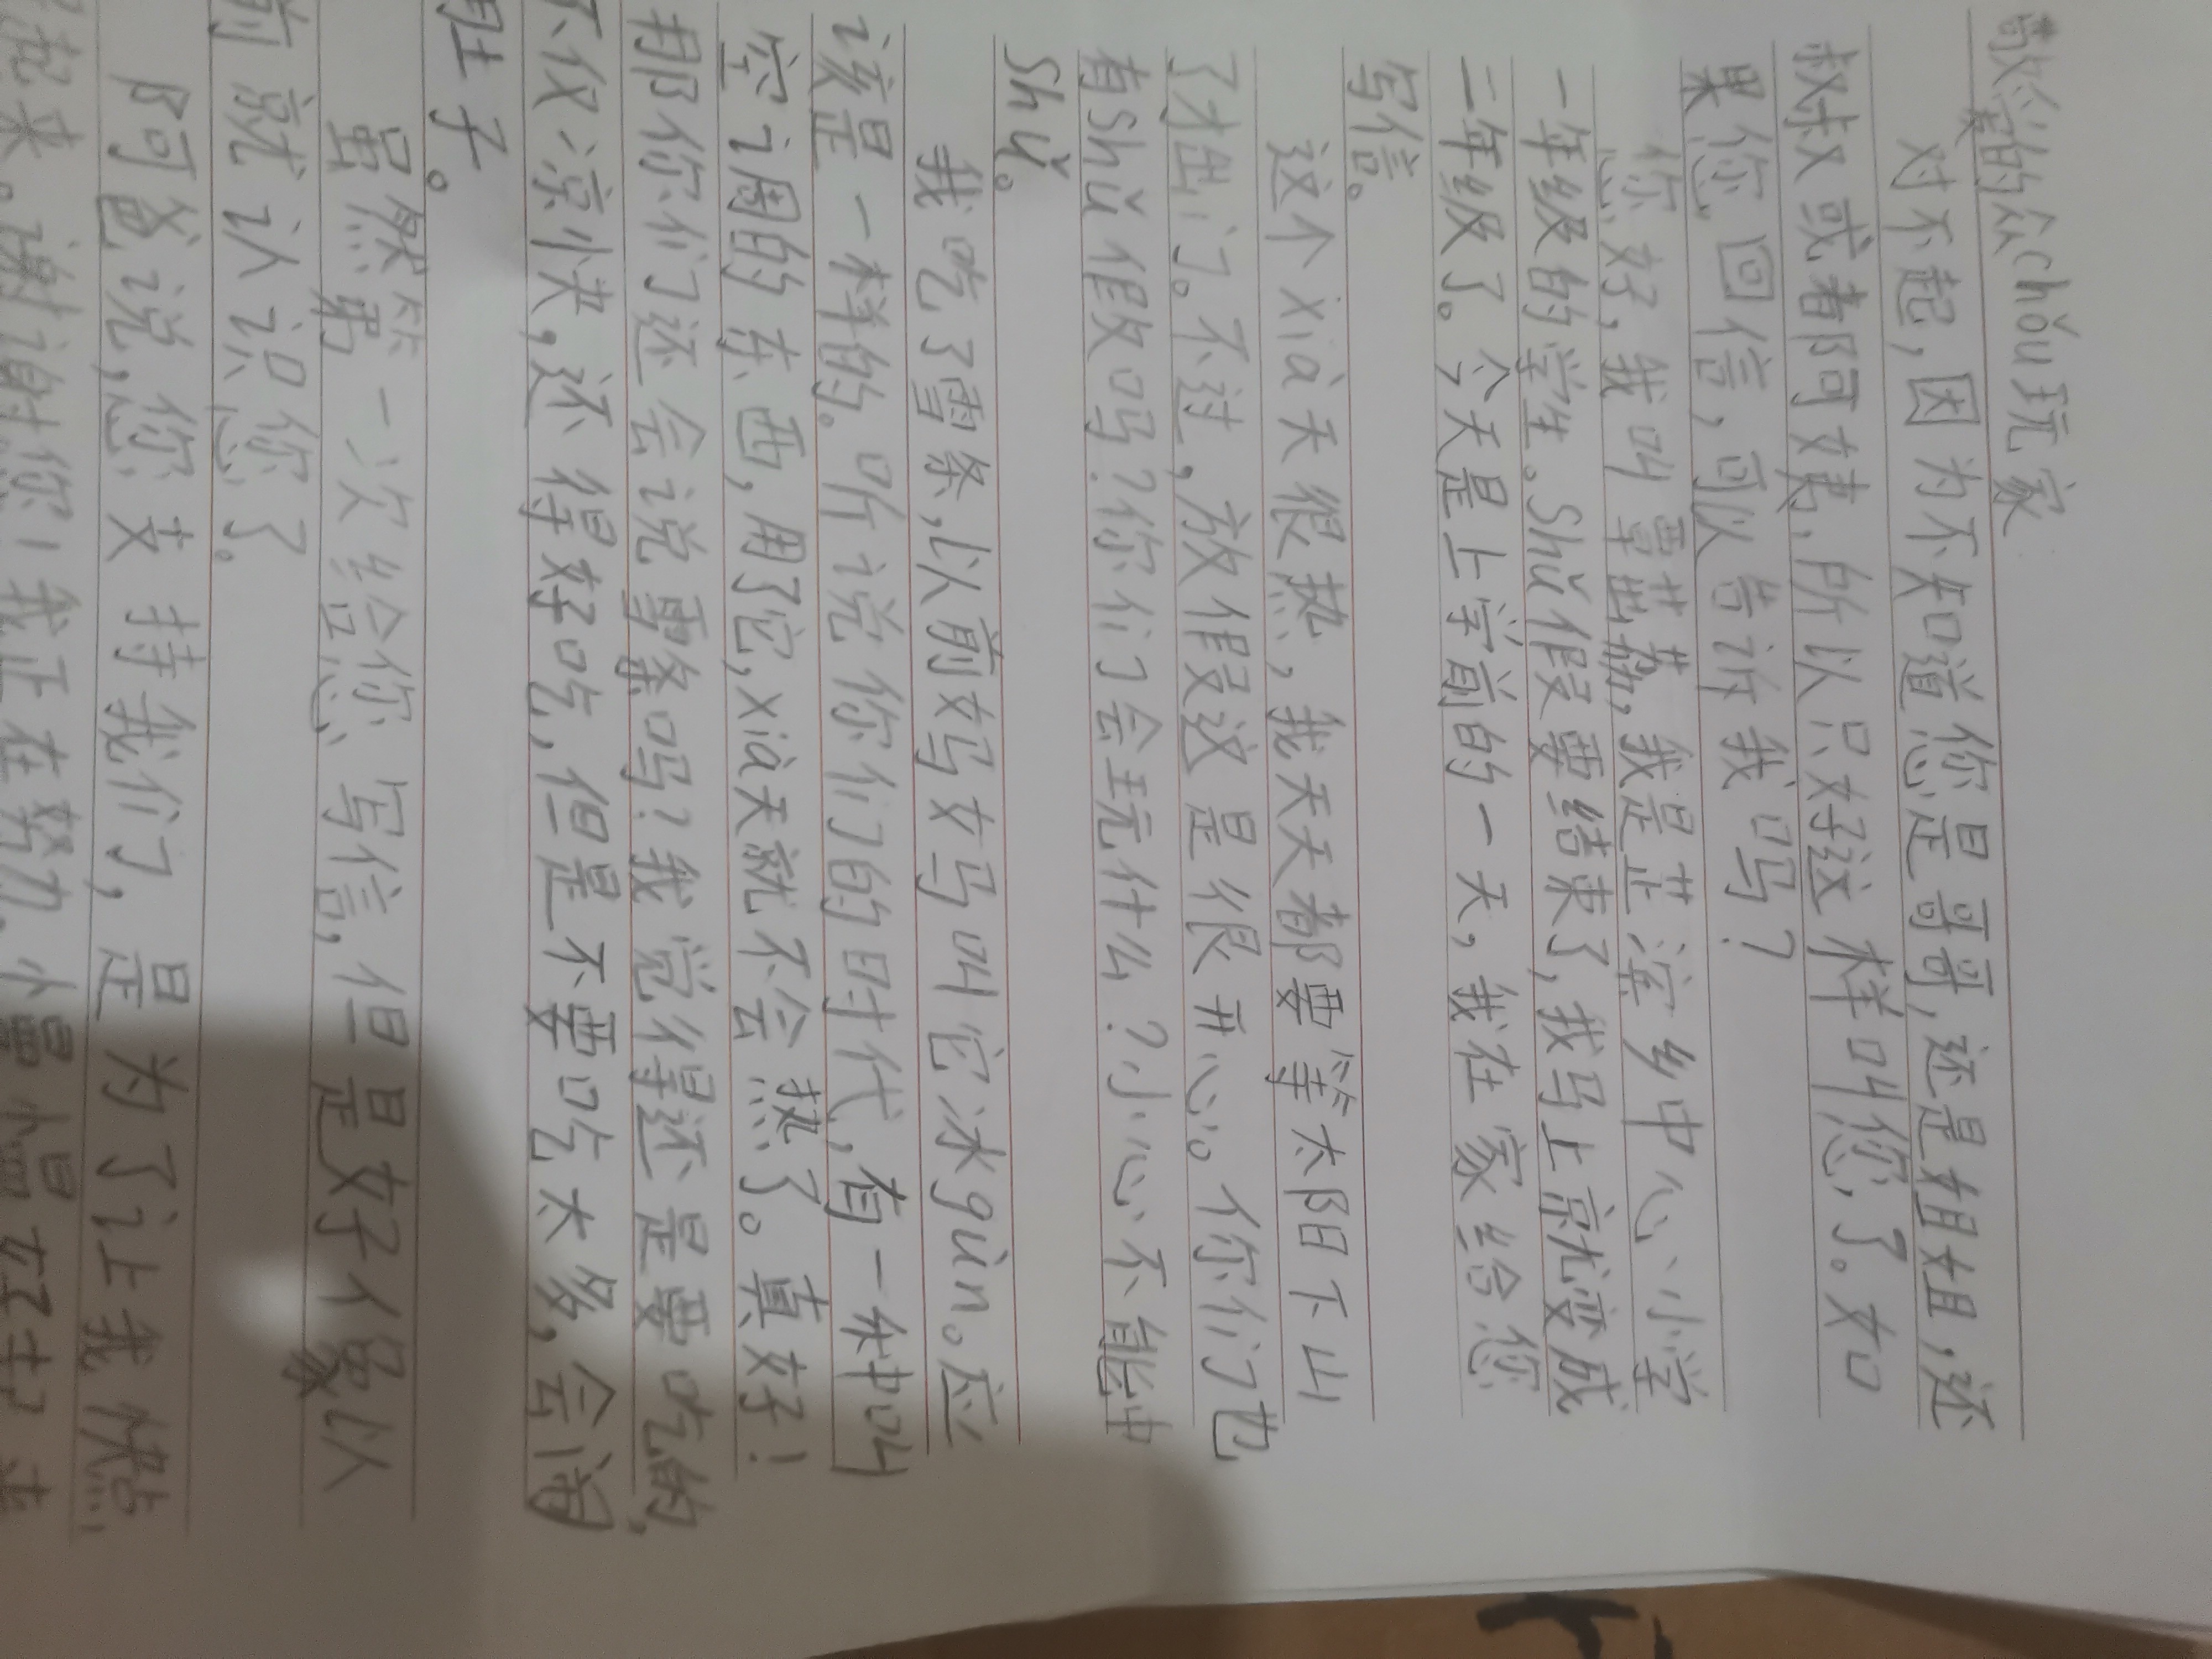 敬爱的众chǒu玩家
对不起，因为不知道您是哥哥，还是姐姐，还
叔叔或者阿姨，所以只好这样叫您了。如
果您回信，可以告诉我吗？
您好，我叫覃茁菘，我是芷滓乡中心小学
一年级的学生。Shǔ假要结束了，我马上就变成
二年级了。今天是上学前的一天，我在家给您
写信。
这个xià天很热，我天天都要等太阳下山
了才出门。不过，放假这是很开心。你们也
有shǔ假吗？你们会玩什么？小心不能中
Shǔ。
我吃了雪条，以前妈妈叫它冰gùn。应
该是一样的。听说你们的时代，有一种叫
空调的东西，用了它，xià天就不会热了。真好！
那你们还会说雪条吗？我觉得还是要吃的，
不仅凉快，还得好吃，但是不要吃太多，会闹
肚子。
虽然第一次给您写信，但是好像以
前就认识您了。
阿爸说，您支持我们，是为了让我快点
起来。谢谢您！我正在努力，